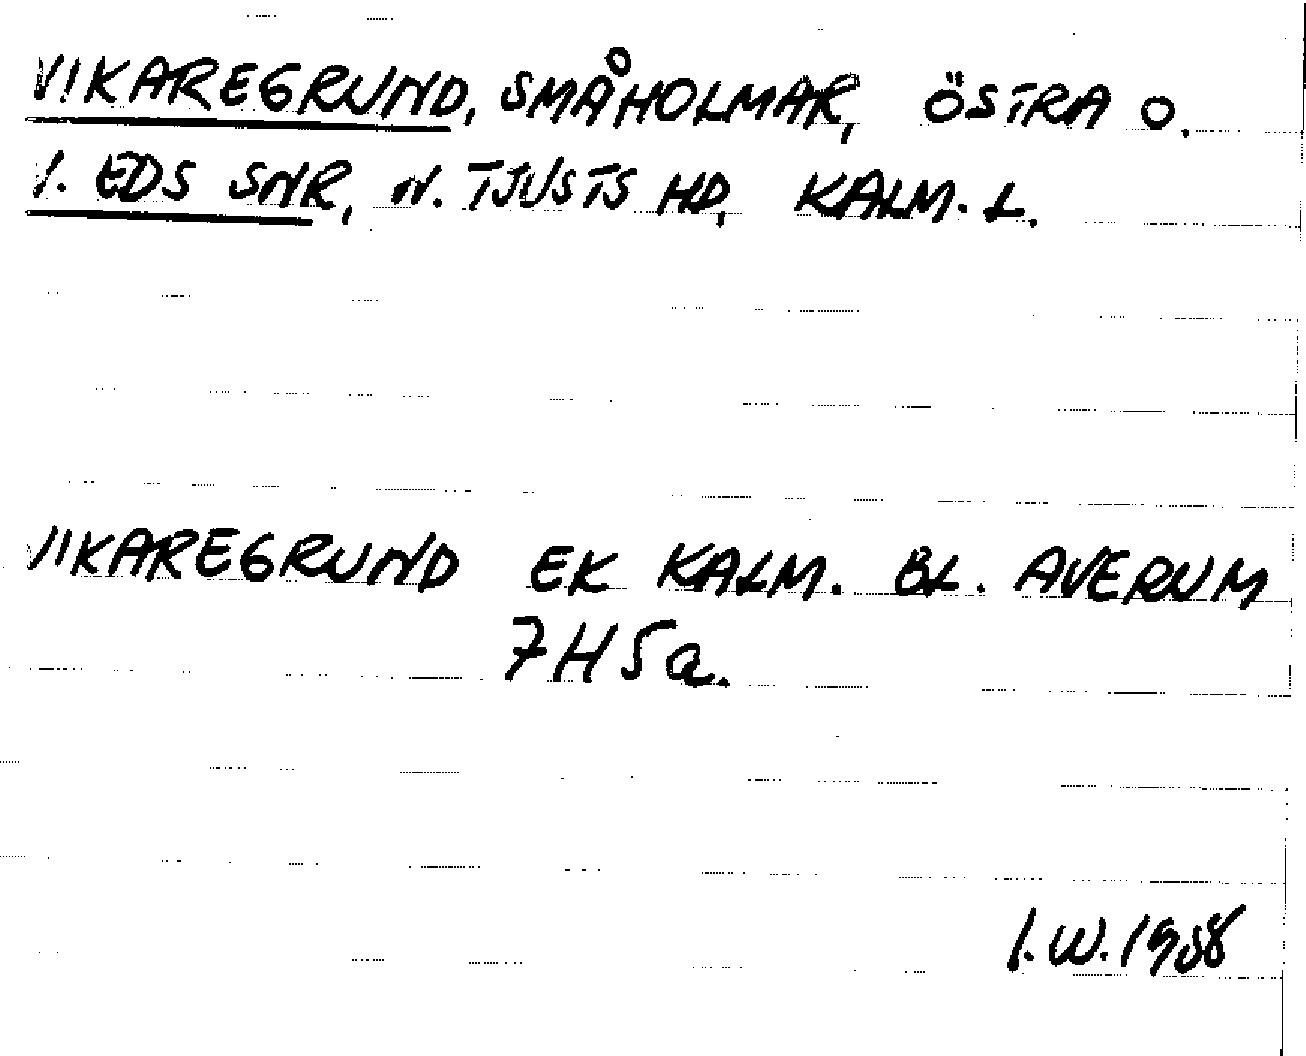 VIKAREGRUND, SMÅHOLMAR, ÖSTRA O.
V. EDS SNR, N. TJUSTS HD, KALM. L.
VIKAREGRUND EK KALM. BL. AVERUM
7H5a.
I.W. 1958